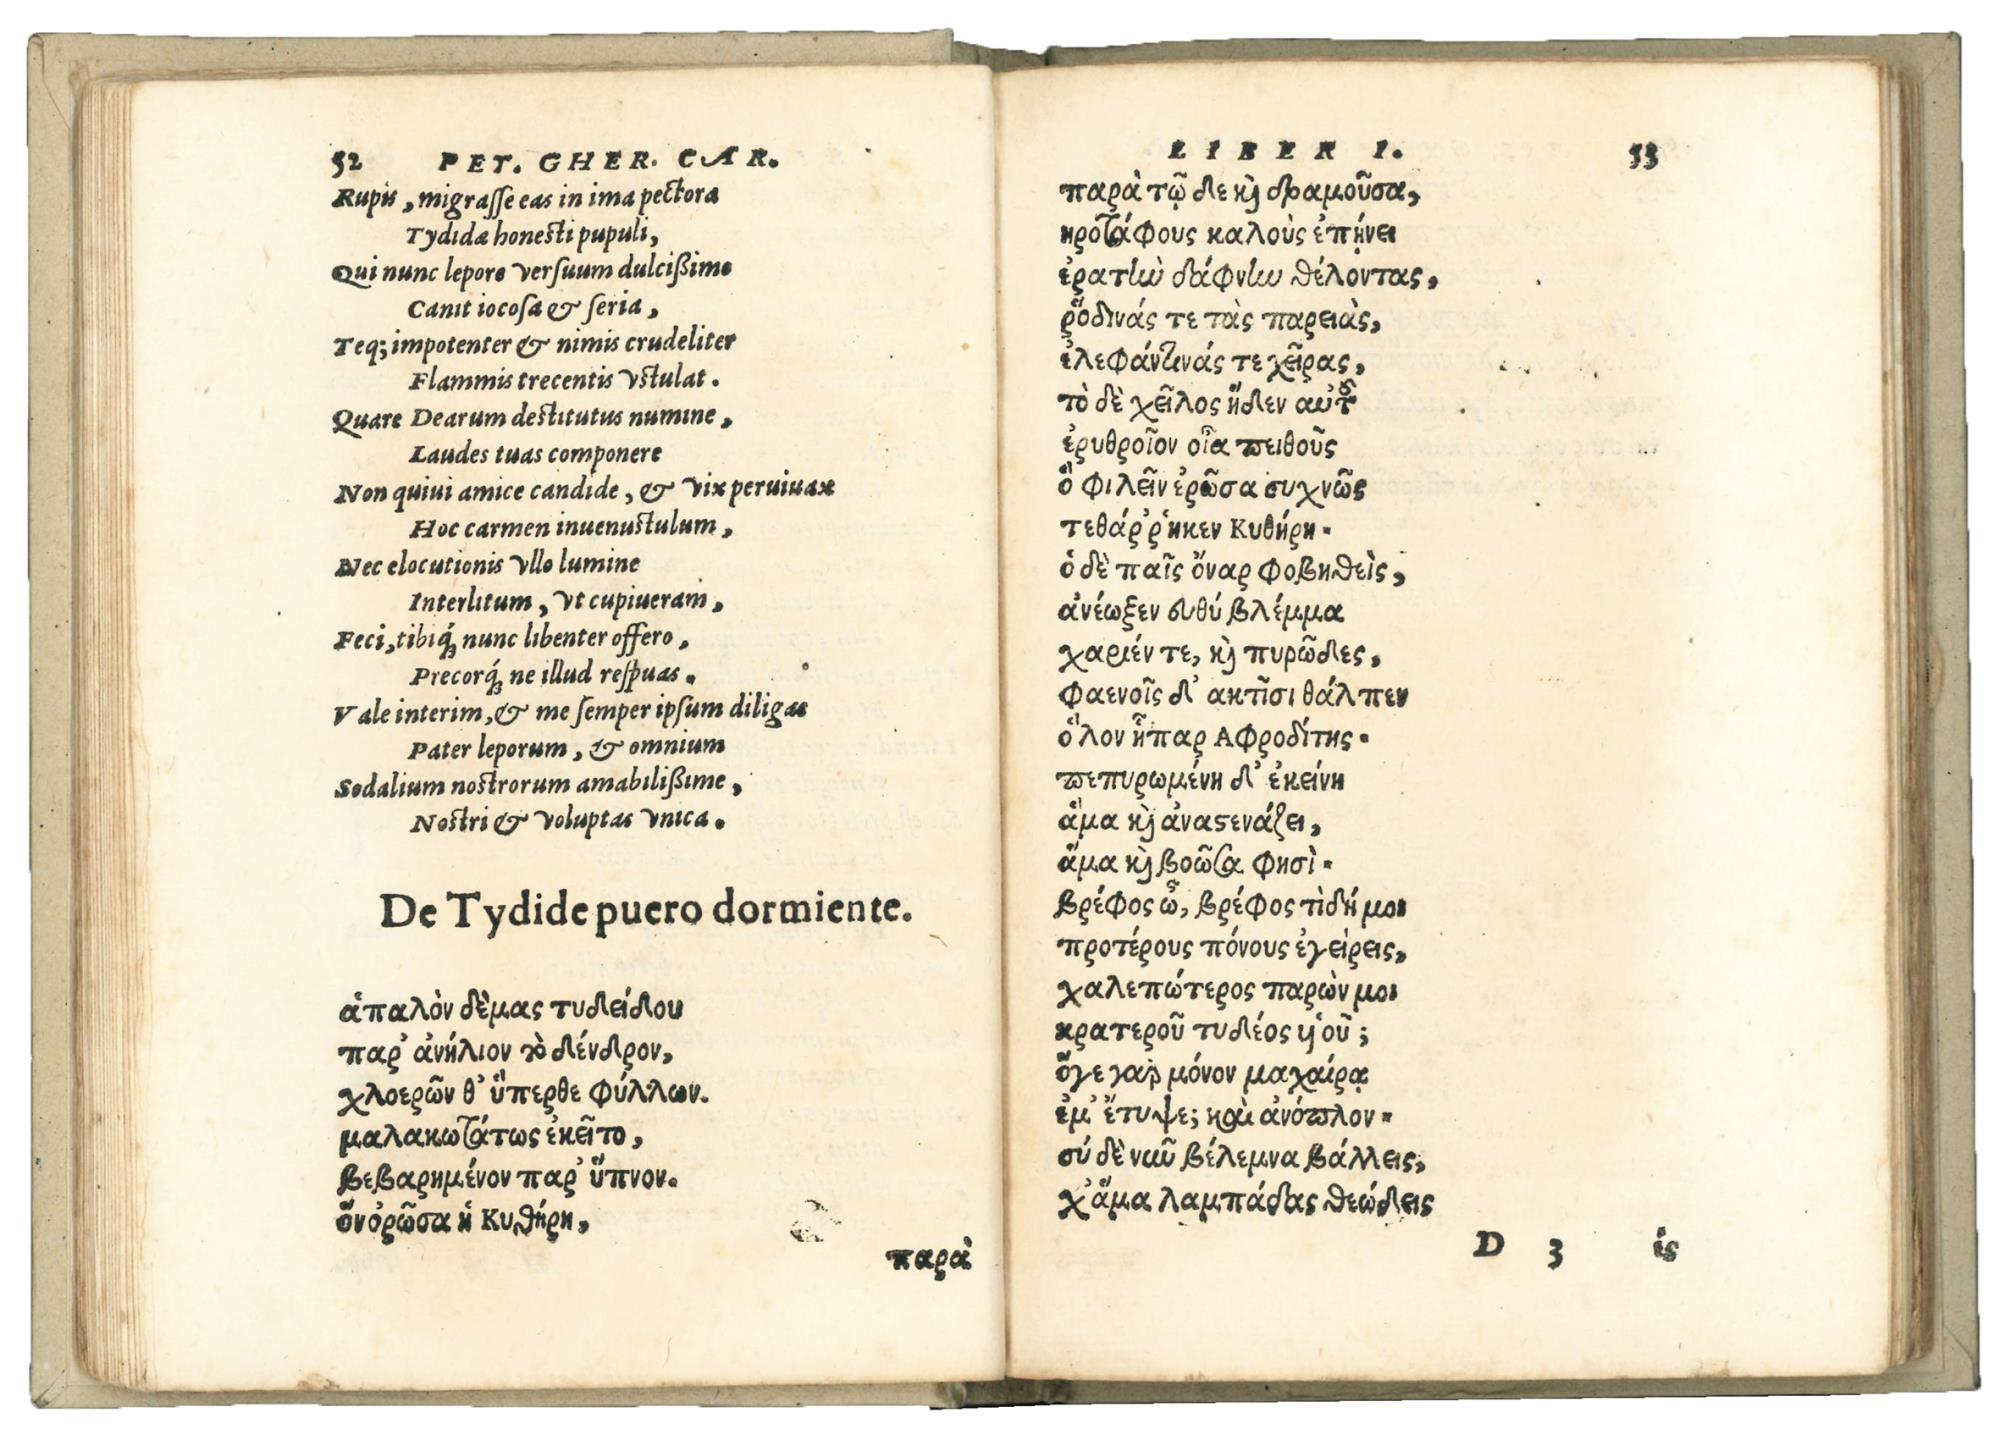 52 PET. GHER. CAR.
Rupis, migraſſe eas in ima pectora
Tydidæ honesti pupuli,
Qui nunc lepore verſuum dulcißimo
Canit iocoſa & ſeria,
Teq; impotenter & nimis crudeliter
Flammis trecentis vstulat.
Quare Dearum destitutus numine,
Laudes tuas componere
Non quiui amice candide, & vix peruiuax
Hoc carmen inuenustulum,
Nec elocutionis vllo lumine
Interlitum, vt cupiueram,
Feci, tibiq́; nunc libenter offero,
Precorq́; ne illud reſpuas.
Vale interim, & me ſemper ipſum diligas
Pater leporum, & omnium
Sodalium nostrorum amabilißime,
Nostri & voluptas vnica.
De Tydide puero dormiente.
ἁπαλὸν δὲμας τυδείδου
παρ' ἀνήλιον τὸ δένδρον,
χλοερῶν θ' ὕπερθε φύλλων.
μαλακωτάτως ἐκεῖτο,
βεβαρημένον παρ' ὕπνον.
ὅν ὁρῶσα ἡ Κυθήρη,
παρὰ
LIBER I. 53
παρὰ τῷ δε κὶ δραμοῦσα,
κροτάφους καλοὺς ἐπῄνει
ἐρατὴν δάφνην θέλοντας,
ῥοδινάς τε τὰς παρειὰς,
ἐλεφάντινάς τε χεῖρας,
τὸ δὲ χεῖλος ᾕδεν αὐτοῦ
ἐρυθροῖον οἷα πειθοῦς
ὃ φιλεῖν ἐρῶσα συχνῶς
τεθάῤῥηκεν Κυθήρη.
ὁ δὲ παῖς ὄναρ φοβηθεὶς,
ἀνέωξεν εὐθύ βλέμμα
χαρίεν τε, κὶ πυρῶδες,
φαενοῖς δ' ακτῖσι θάλπεν
ὅλον ἧπαρ Αφροδίτης.
πεπυρωμένη δ' ἐκείνη
ἅμα κὶ ἀναστενάζει,
ἅμα κὶ βοῶσα φησὶ.
βρέφος ὦ, βρέφος τὶ δή μοι
προτέρους πόνους ἐγείρεις,
χαλεπώτερος παρὼν μοι
κρατεροῦ τυδέος υἱοῦ;
ὅγε γαρ μόνον μαχαίρᾳ
ἐμ' ἔτυψε; καὶ ἀνόπλον.
σύ δὲ νῦν βέλεμνα βάλλεις,
χ' ἅμα λαμπάδας θεώδεις
D 3 ἐς